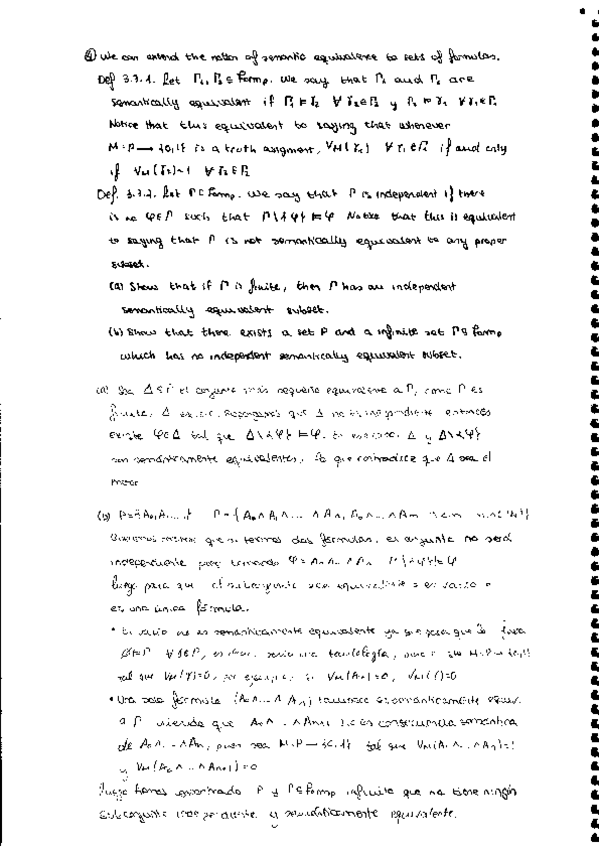 ④ We can extend the notion of semantic equivalence to sets of formulas.
Def 3.3.1. Let Γ₁, Γ₂ ⊆ Form_P. We say that Γ₁ and Γ₂ are
semantically equivalent if Γ₁ ⊨ γ₂ ∀ γ₂ ∈ Γ₂ y Γ₂ ⊨ γ₁ ∀ γ₁ ∈ Γ₁
Notice that this equivalent to saying that whenever
M: P → {0,1} is a truth asigment, V_M(γ₁) ∀ γ₁ ∈ Γ₁ if and only
if V_M(γ₂)=1 ∀ γ₂ ∈ Γ₂
Def. 3.3.2. Let Γ ⊆ Form_P. We say that Γ is independent if there
is no φ ∈ Γ such that Γ\{φ} ⊨ φ. Notice that this is equivalent
to saying that Γ is not semantically equivalent to any proper
subset.
(a) Show that if Γ is finite, then Γ has an independent
semantically equivalent subset.
(b) Show that there exists a set P and a infinite set Γ ⊆ Form_P
which has no independent semantically equivalent subset.
(a) Sea Δ ⊆ Γ el conjunto más pequeño equivalente a Γ, como Γ es
finito, Δ existe. Supongamos que Δ no es independiente entonces
existe φ ∈ Δ tal que Δ\{φ} ⊨ φ. En ese caso Δ y Δ\{φ}
son semánticamente equivalentes, lo que contradice que Δ sea el
menor
(b) P = {A₀, A₁, ...} Γ = {A₀ ∧ A₁ ∧ ... ∧ Aₙ
que si tenemos dos fórmulas, el conjunto no será
independiente pues tomando φ = A₀ ∧ ... ∧ Aₙ Γ\{φ} ⊨ φ
luego para que el subconjunto sea equivalente o es vacío o
es una única fórmula.
• El vacío no es semánticamente equivalente ya que para que lo fuera
∅ ⊨ γ ∀ γ ∈ Γ, es decir, sería una tautología, M: P → {0,1}
tal que V_M(γ)=0, por ejemplo, si V_M(A₀)=0, V_M(γ)=0
• Una sola fórmula {A₀ ∧ ... ∧ Aₙ} tampoco es semánticamente equiv.
a Γ viendo que A₀ ∧ ... ∧ Aₙ₊₁ no es consecuencia semántica
de A₀ ∧ ... ∧ Aₙ, pues sea M: P → {0,1} tal que V_M(A₀ ∧ ... ∧ Aₙ)=1
y V_M(A₀ ∧ ... ∧ Aₙ₊₁)=0
Luego hemos encontrado P y Γ ⊆ Form_P infinito que no tiene ningún
subconjunto independiente y semánticamente equivalente.